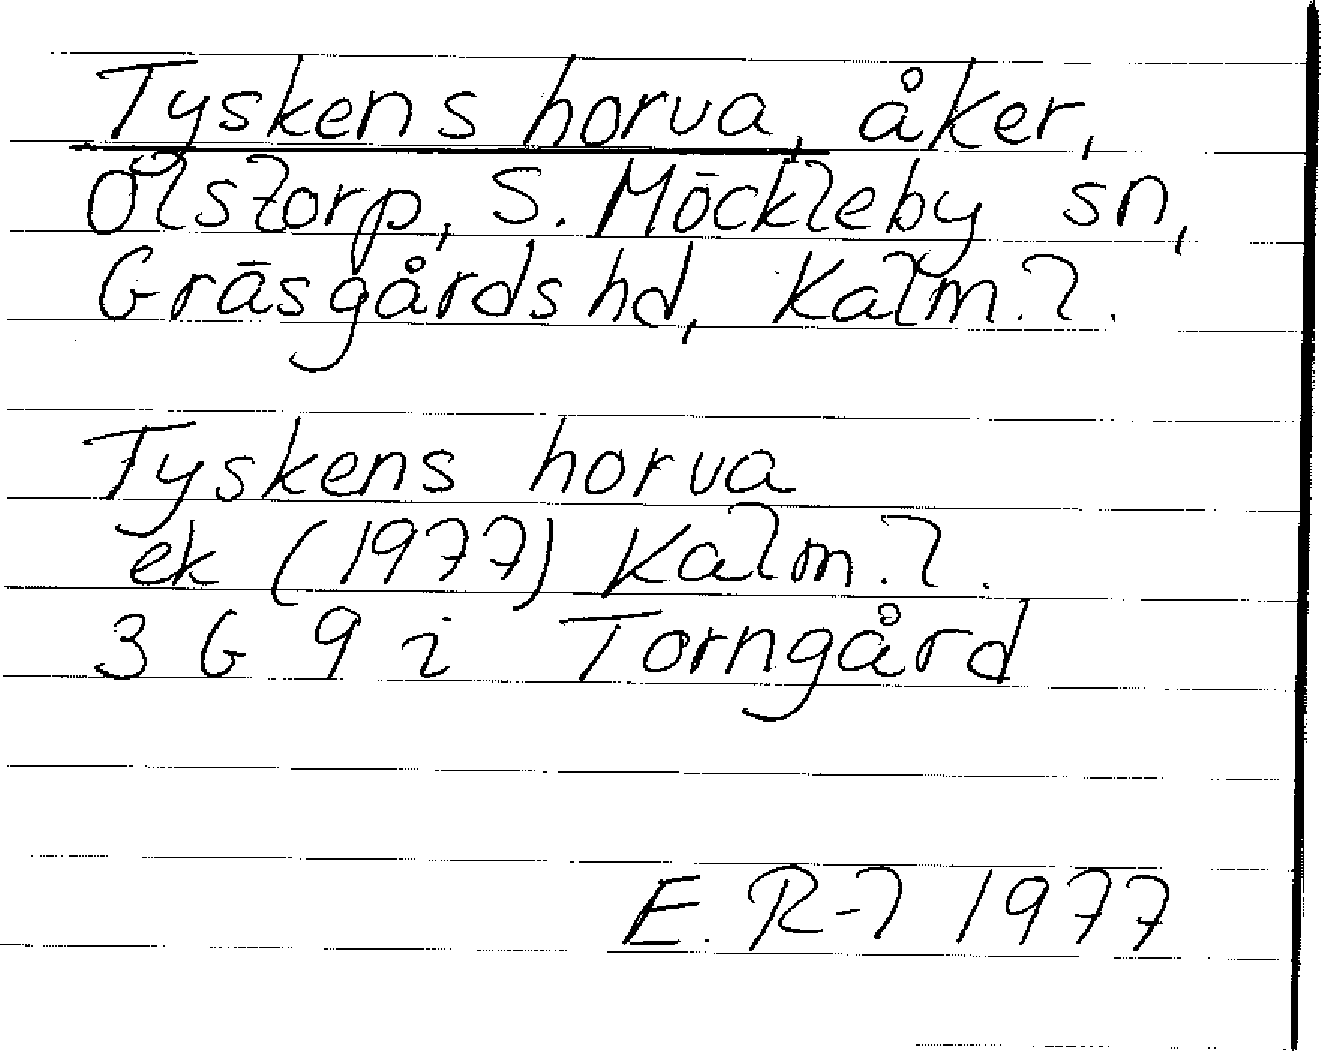 Tyskens horva, åker,
Ölstorp, S. Möckleby sn,
Gräsgårds hd, Kalm.l.
Tyskens horva
ek (1977) Kalm.l.
3 G 9 i Torngård
E. R-l 1977